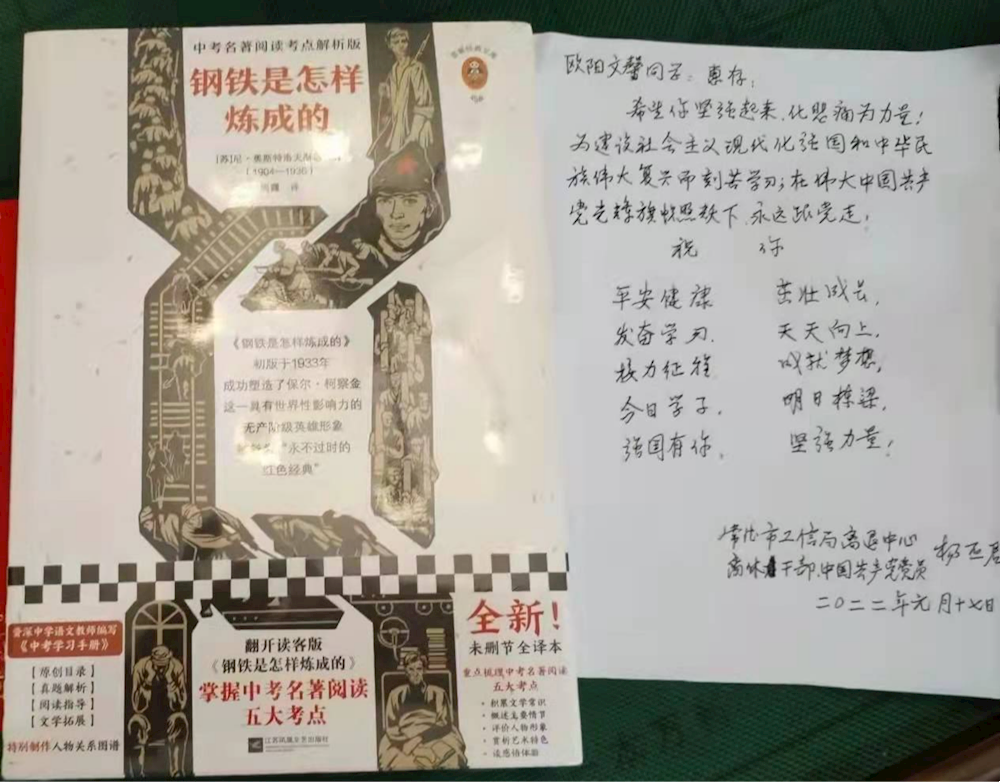 中考名著阅读考点解析版
钢铁是怎样
炼成的
[苏]尼·奥斯特洛夫斯
(1904—1936)
译
《钢铁是怎样炼成的》
初版于1933年
成功塑造了保尔·柯察金
这一具有世界性影响力的
无产阶级英雄形象
“永不过时的
红色经典”
资深中学语文教师编写
《中考学习手册》
[原创目录]
[真题解析]
[阅读指导]
[文学拓展]
特别制作人物关系图谱
翻开读客版
《钢铁是怎样炼成的》
掌握中考名著阅读
五大考点
江苏凤凰文艺出版社
全新!
未删节全译本
重点梳理中考名著阅读
五大考点
·积累文学常识
·概述主要情节
·评价人物形象
·赏析艺术特色
·谈感悟体验
欧阳文馨同学:惠存:
希望你坚强起来、化悲痛为力量!
为建设社会主义现代化强国和中华民
族伟大复兴而刻苦学习;在伟大中国共产
党光辉旗帜照耀下、永远跟党走!
祝 你
平安健康 茁壮成长,
发奋学习 天天向上,
接力征程 成就梦想,
今日学子, 明日栋梁,
强国有你, 坚强力量!
常德市工信局离退中心
离休干部、中国共产党党员 杨
二〇二二年元月十七日